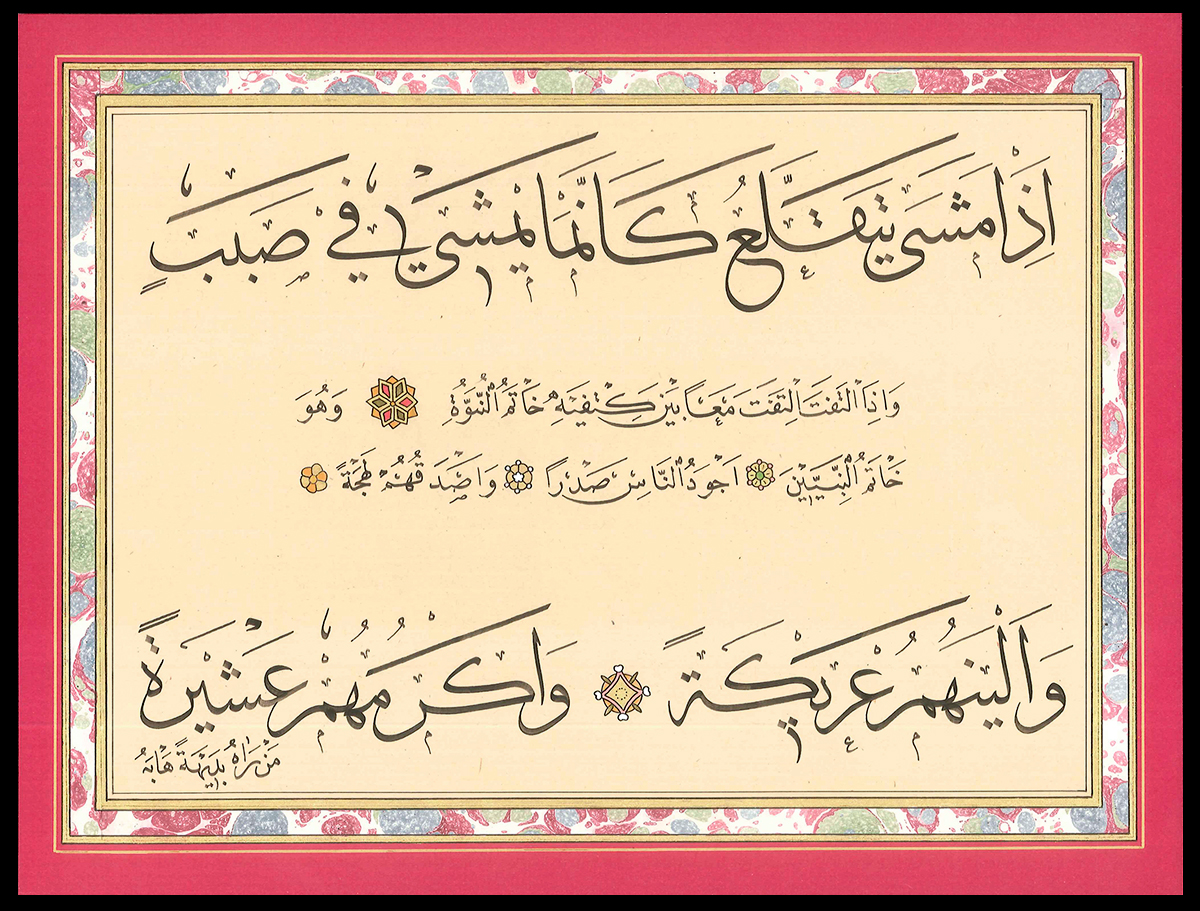 اِذَا مَشَى يَتَقَلَّعُ كَاَنَّمَا يَمْشِي فِي صَبَبٍ
وَاِذَا الْتَفَتَ الْتَفَتَ مَعًا بَيْنَ كِتْفَيْهِ خَاتَمُ النُّبُوَّةِ وَهُوَ
خَاتَمُ النَّبِيِّينَ اَجْوَدُ النَّاسِ صَدْرًا وَاَصْدَقُهُمْ لَهْجَةً
وَاَلْيَنُهُمْ عَرِيكَةً وَاَكْرَمُهُمْ عَشِيرَةً
مَنْ رَاٰهُ بَدِيهَةً هَابَهُ